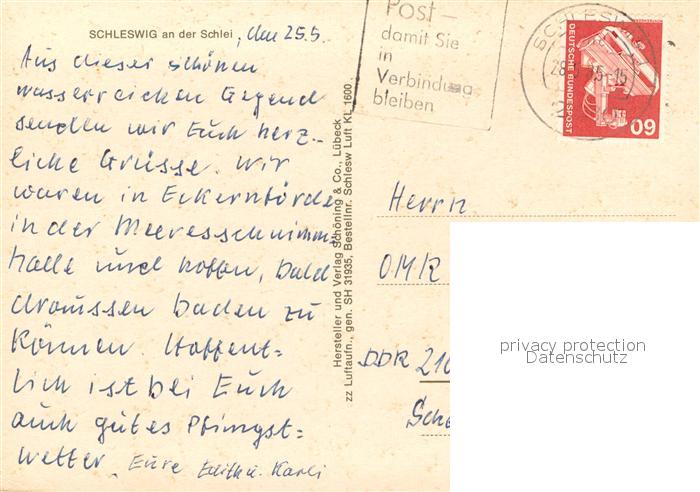 SCHLESWIG an der Schlei, den 25.5.
Aus dieser schönen
wasserreichen Gegend
senden wir Euch herz-
liche Grüsse. Wir
waren in Eckernförde
in der Meeresschwimm
halle und hoffen, bald
draussen baden zu
können. Hoffent=
lich ist bei Euch
auch gutes Pfingst=
wetter. Eure Edith u. Karli
Hersteller und Verlag Schöning & Co., Lübeck
zz Luftaufn., gen. SH 31935, Bestellnr. Schlesw Luft KL 1600
Post –
damit Sie
in
Verbindung
bleiben
SCHLESWIG
DEUTSCHE BUNDESPOST
60
Herrn
OMR
DDR 210
Sche
privacy protection
Datenschutz